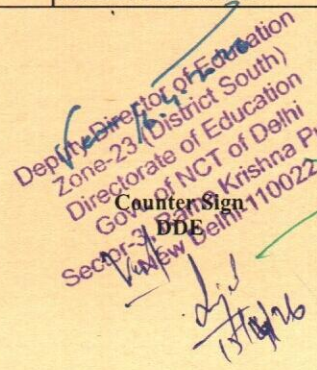 Deputy Director of Education
Zone-23 (District South)
Directorate of Education
Govt. of NCT of Delhi
Sector-3, Rama Krishna Pu
New Delhi-110022
Counter Sign
DDE